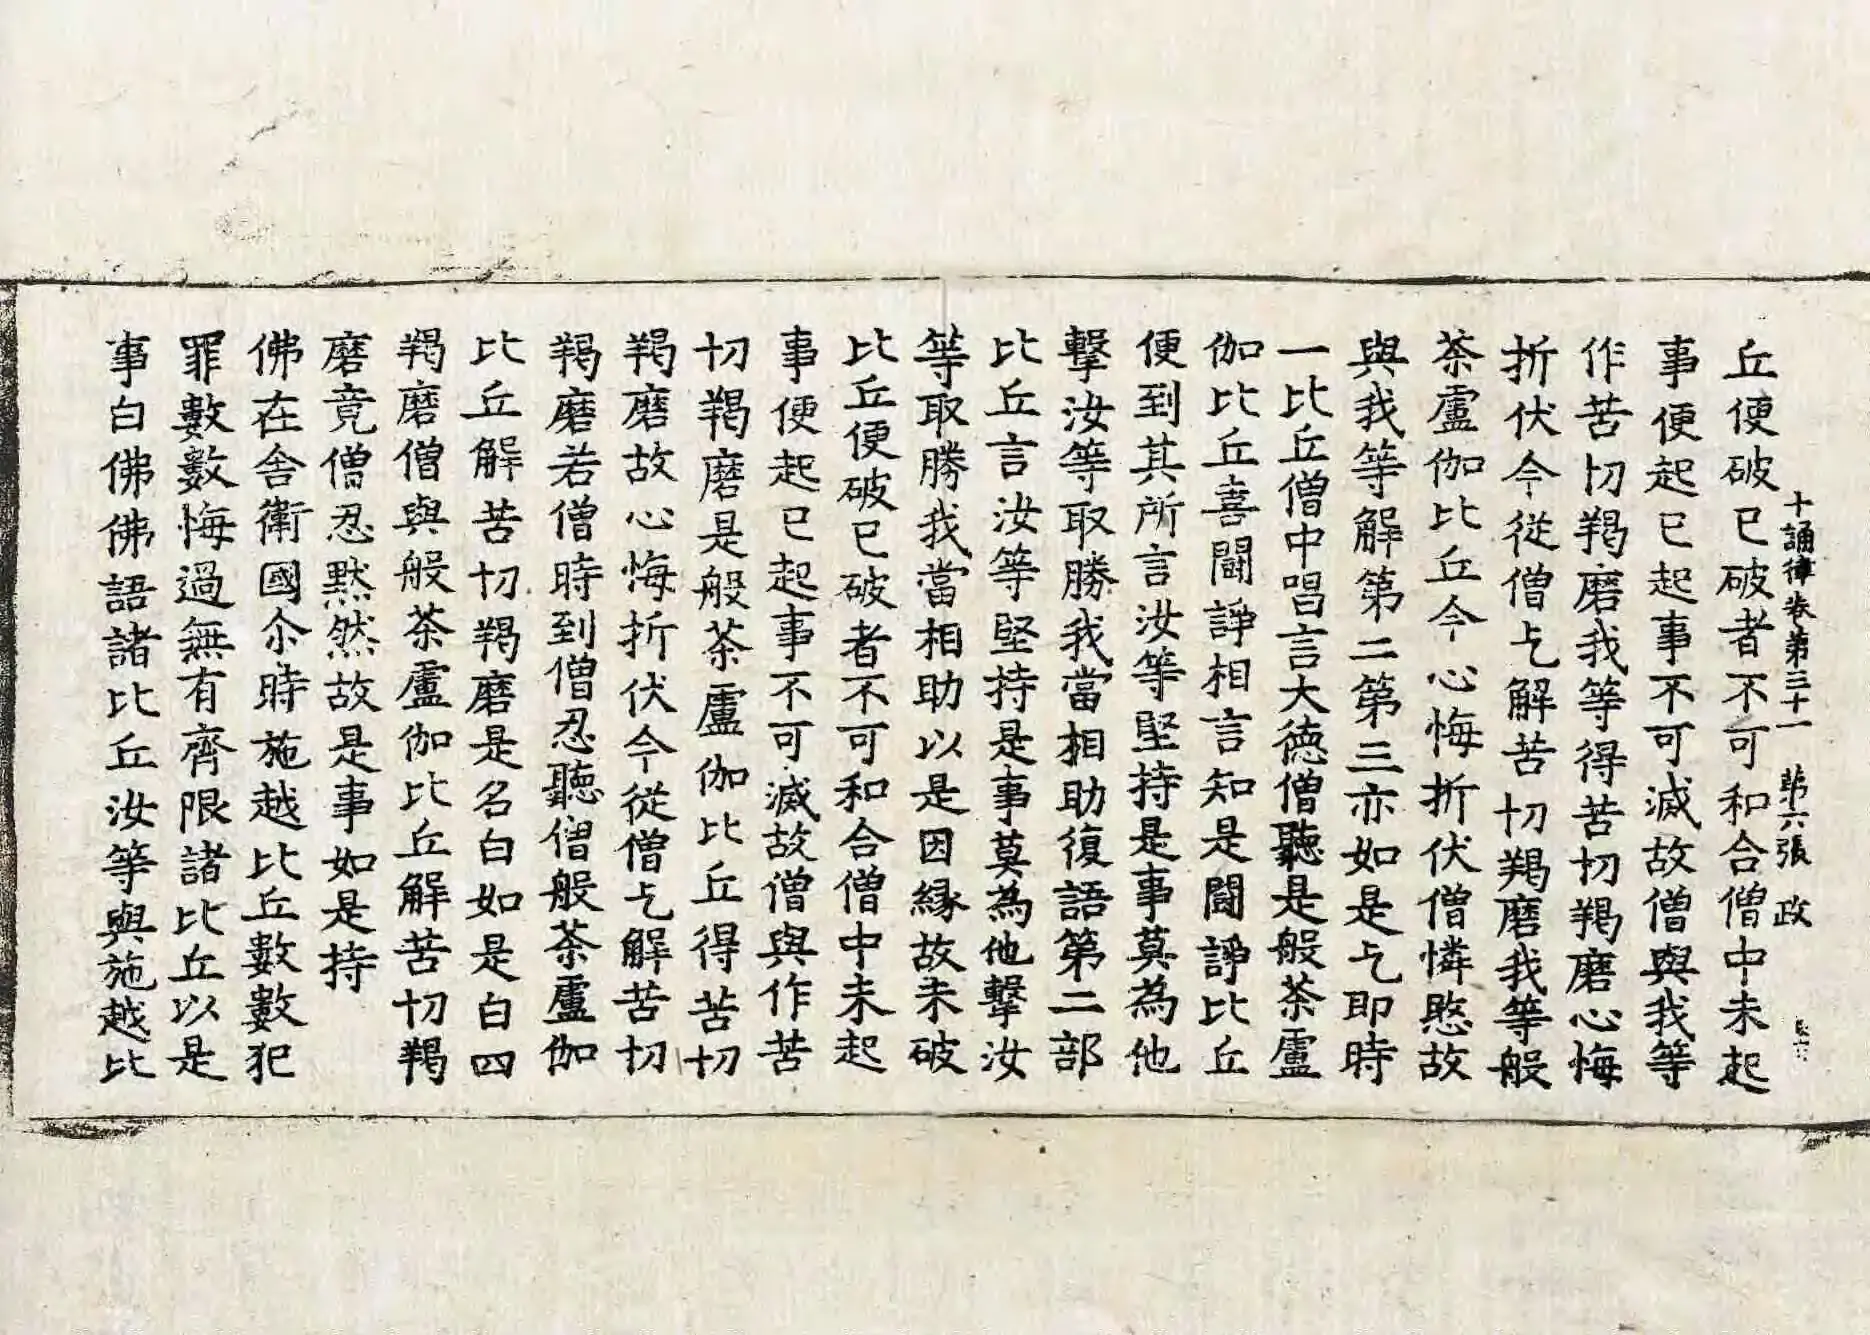 十誦律卷第三十一 第六張 政
丘便破已破者不可和合僧中未起
事便起已起事不可滅故僧與我等
作苦切羯磨我等得苦切羯磨心悔
折伏今從僧乞解苦切羯磨我等般
茶盧伽比丘今心悔折伏僧憐愍故
與我等解第二第三亦如是乞即時
一比丘僧中唱言大德僧聽是般茶盧
伽比丘喜鬪諍相言知是鬪諍比丘
便到其所言汝等堅持是事莫為他
擊汝等取勝我當相助復語第二部
比丘言汝等堅持是事莫為他擊汝
等取勝我當相助以是因緣故未破
比丘便破已破者不可和合僧中未起
事便起已起事不可滅故僧與作苦
切羯磨是般茶盧伽比丘得苦切
羯磨故心悔折伏今從僧乞解苦切
羯磨若僧時到僧忍聽僧般茶盧伽
比丘解苦切羯磨是名白如是白四
羯磨僧與般茶盧伽比丘解苦切羯
磨竟僧忍默然故是事如是持
佛在舍衛國尒時施越比丘數數犯
罪數數悔過無有齊限諸比丘以是
事白佛佛語諸比丘汝等與施越比